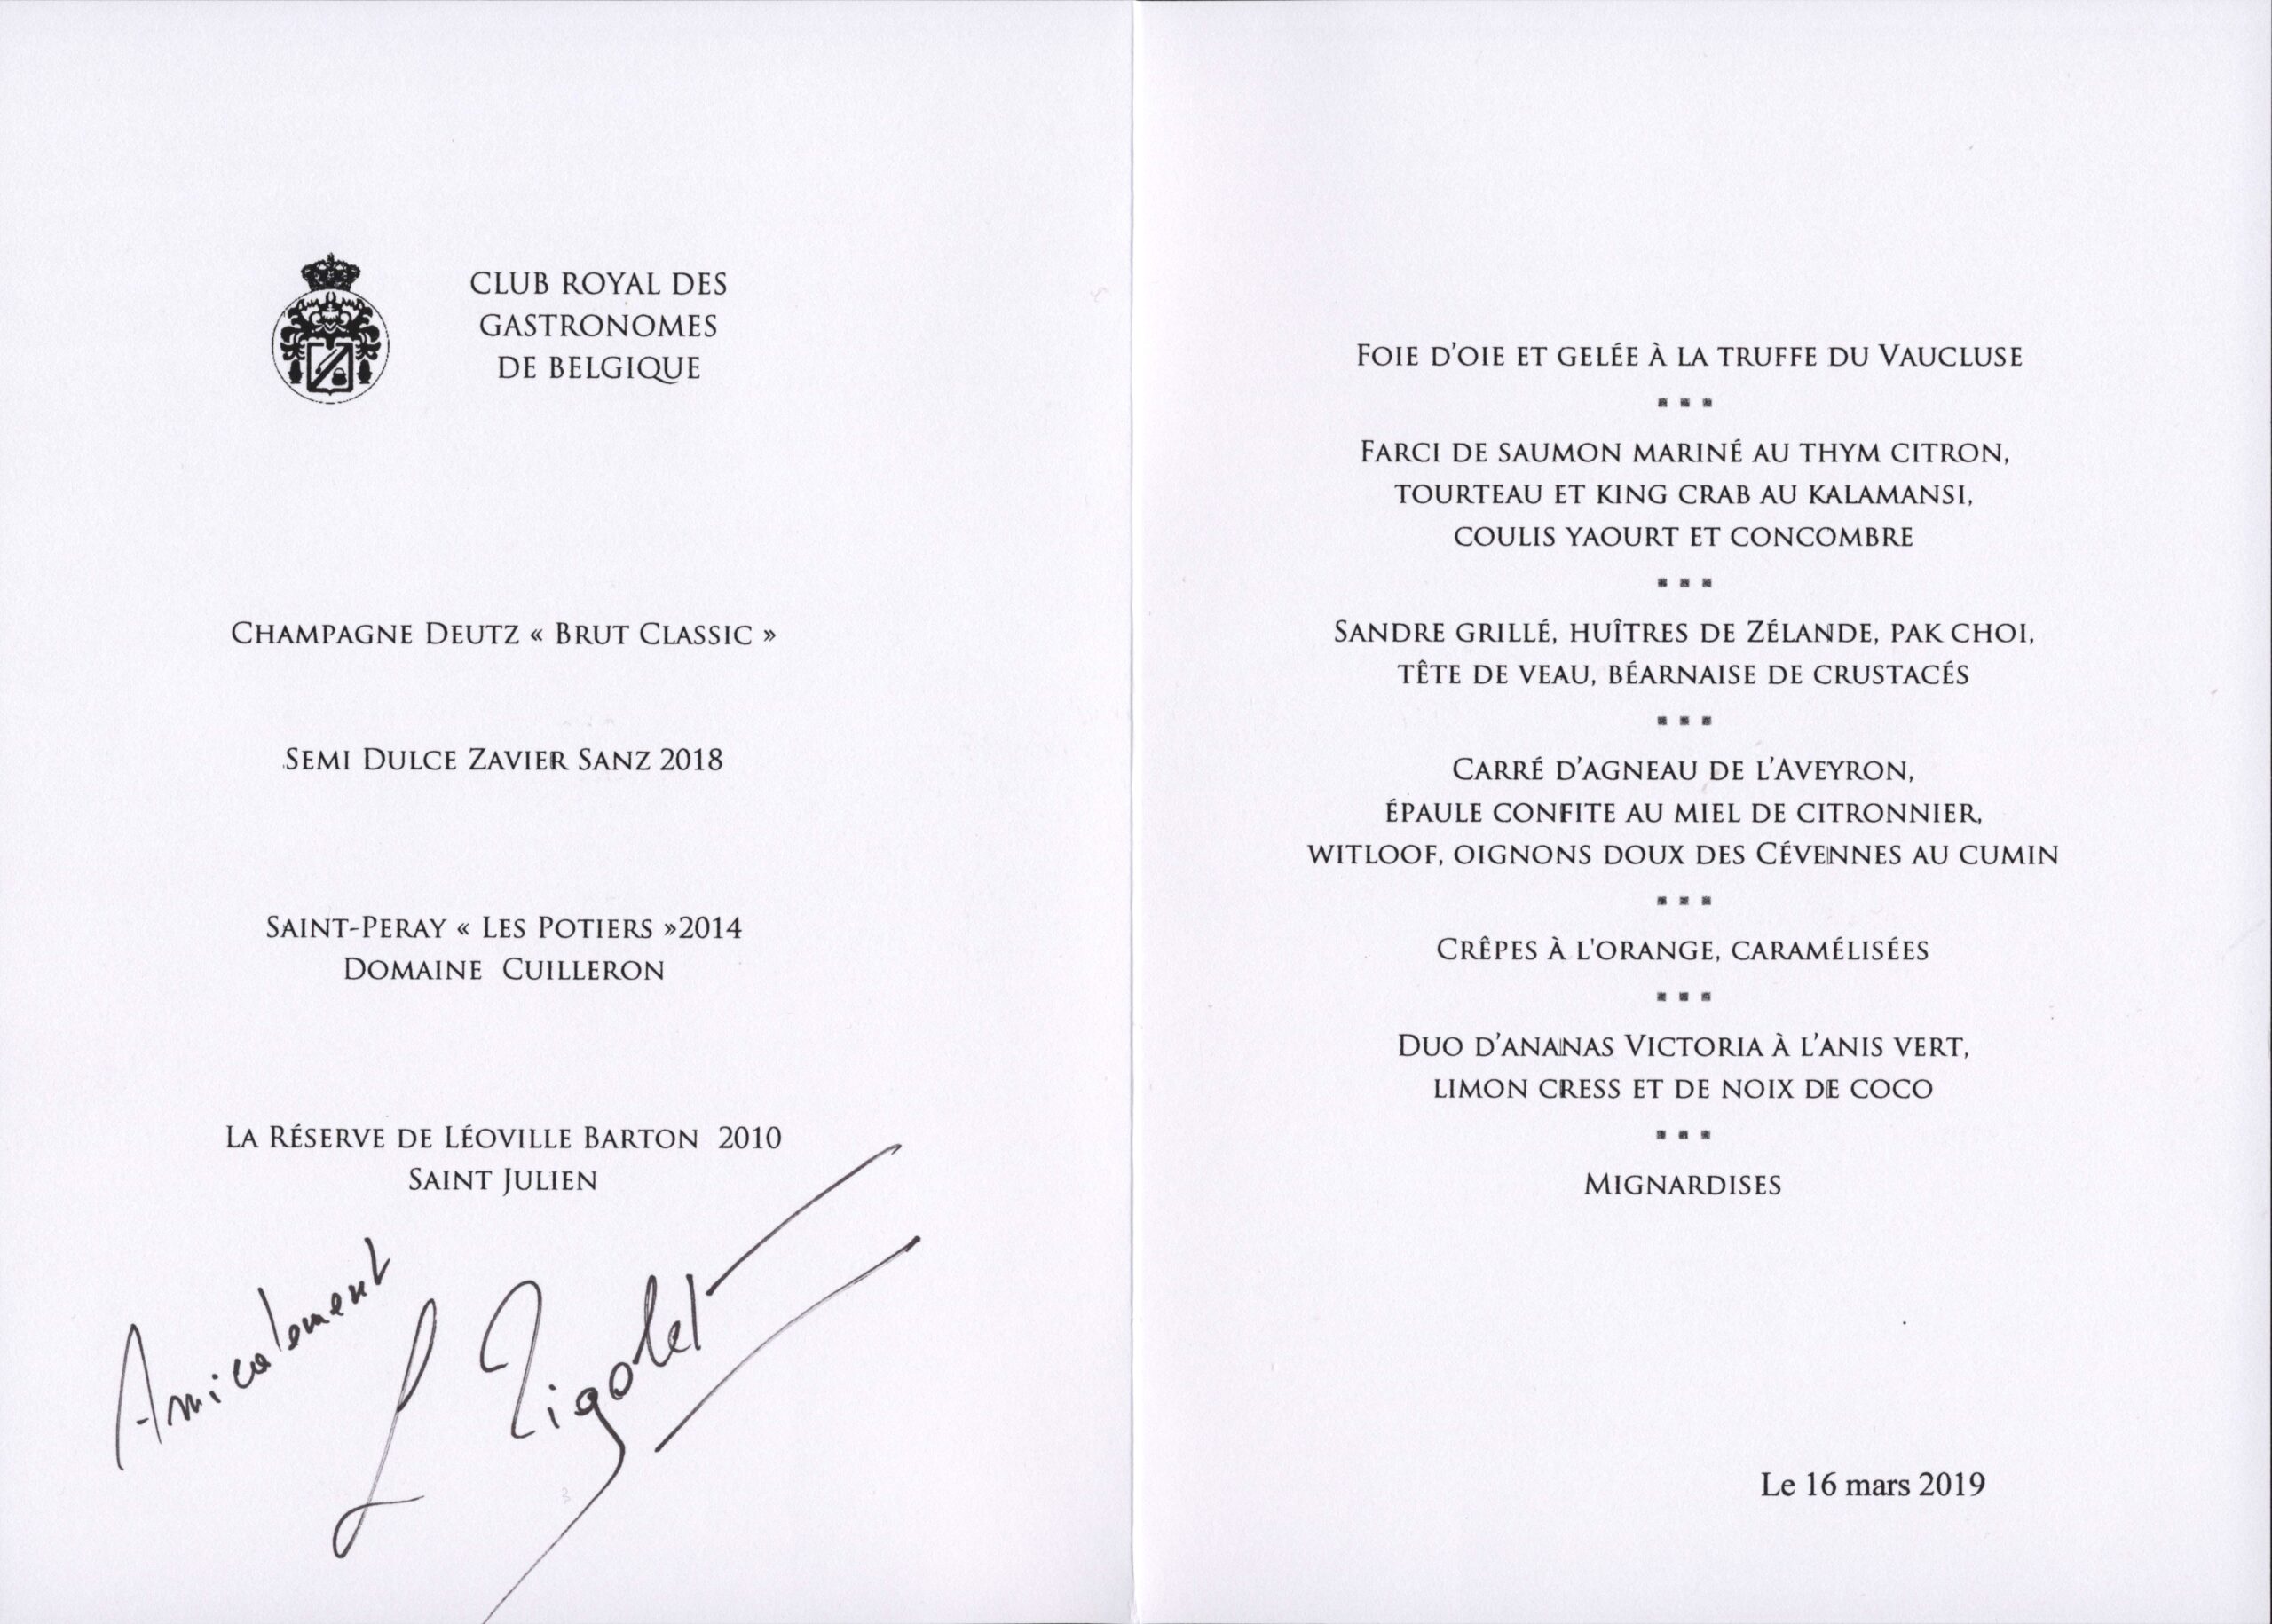 CLUB ROYAL DES
GASTRONOMES
DE BELGIQUE
CHAMPAGNE DEUTZ « BRUT CLASSIC »
SEMI DULCE ZAVIER SANZ 2018
SAINT-PERAY « LES POTIERS »2014
DOMAINE CUILLERON
LA RÉSERVE DE LÉOVILLE BARTON 2010
SAINT JULIEN
Amicalement
L Rigolet
FOIE D'OIE ET GELÉE À LA TRUFFE DU VAUCLUSE
FARCI DE SAUMON MARINÉ AU THYM CITRON,
TOURTEAU ET KING CRAB AU KALAMANSI,
COULIS YAOURT ET CONCOMBRE
SANDRE GRILLÉ, HUÎTRES DE ZÉLANDE, PAK CHOI,
TÊTE DE VEAU, BÉARNAISE DE CRUSTACÉS
CARRÉ D'AGNEAU DE L'AVEYRON,
ÉPAULE CONFITE AU MIEL DE CITRONNIER,
WITLOOF, OIGNONS DOUX DES CÉVENNES AU CUMIN
CRÊPES À L'ORANGE, CARAMÉLISÉES
DUO D'ANANAS VICTORIA À L'ANIS VERT,
LIMON CRESS ET DE NOIX DE COCO
MIGNARDISES
Le 16 mars 2019